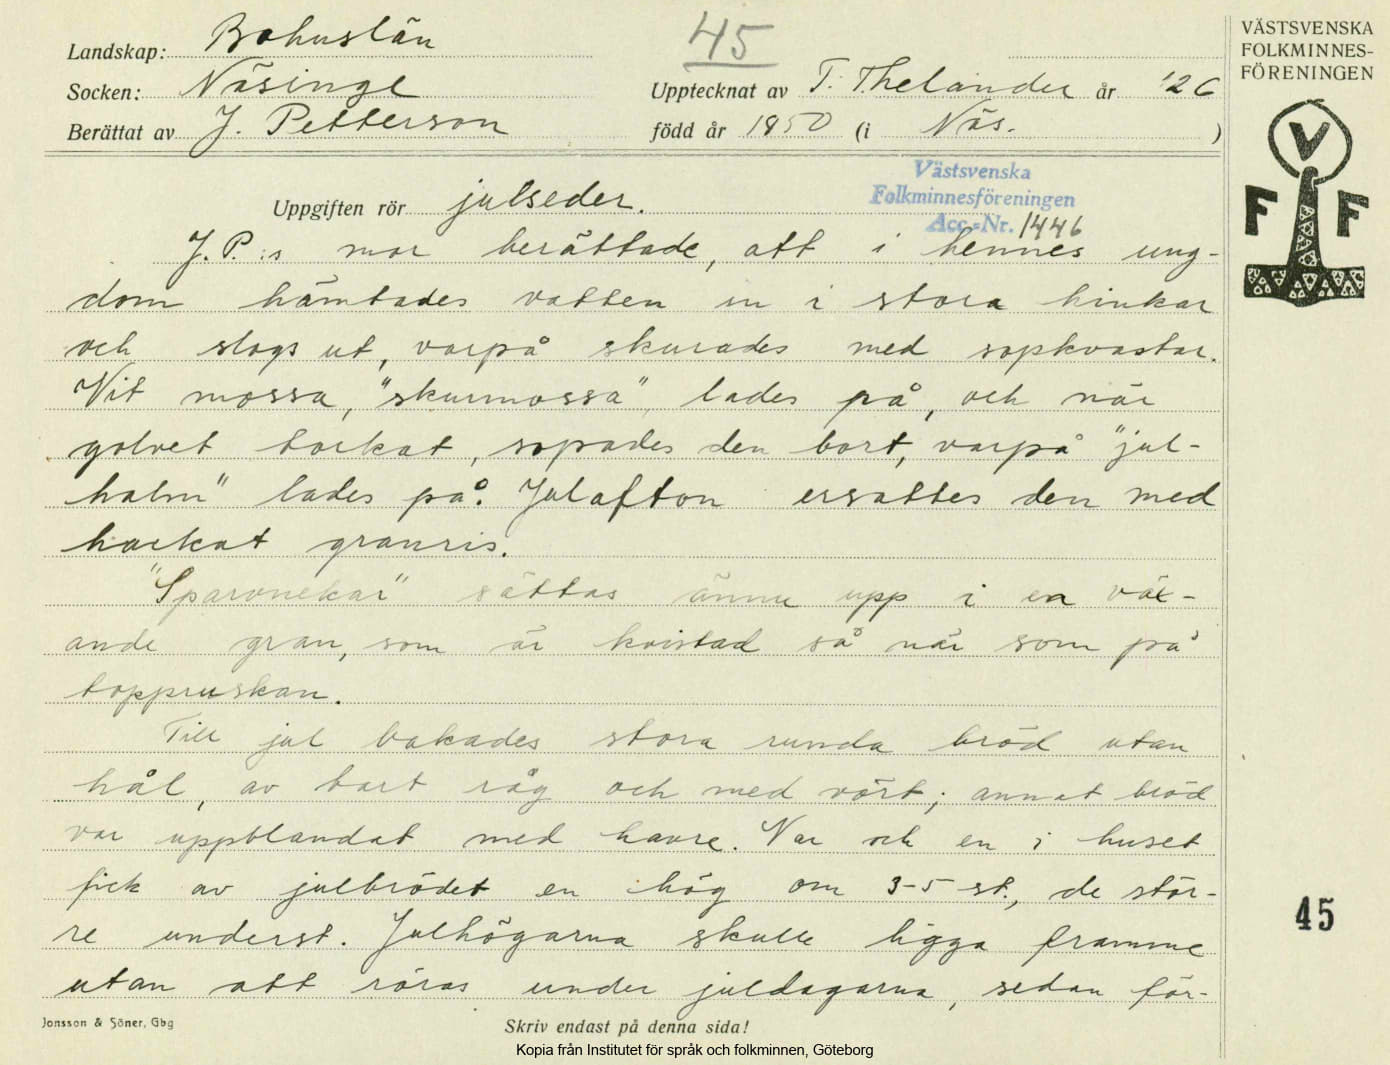 Landskap: Bohuslän
Socken: Näsinge
Berättat av J. Petterson
45
Upptecknat av T. Thelander år '26
född år 1850 (i Näs. )
VÄSTSVENSKA
FOLKMINNES-
FÖRENINGEN
V
F F
Västsvenska
Folkminnesföreningen
Acc.-Nr. 1446
Uppgiften rör julseder.
J. P.:s mor berättade, att i hennes ung-
dom hämtades vatten in i stora hinkar
och slogs ut, varpå skurades med sopkvastar.
Vit mossa, "skurmossa" lades på, och när
golvet torkat, sopades den bort, varpå "jul-
halm" lades på. Julafton ersattes den med
hackat granris.
"Sparvnekar" sättas ännu upp i en väx-
ande gran, som är kvistad så när som på
toppruskan.
Till jul bakades stora runda bröd utan
hål, av bart råg och med vört; annat bröd
var uppblandat med havre. Var och en i huset
fick av julbrödet en hög om 3-5 st., de stör-
re underst. Julhögarna skulle ligga framme
utan att röras under juldagarna, sedan för-
45
Jonsson & Söner, Gbg
Skriv endast på denna sida!
Kopia från Institutet för språk och folkminnen, Göteborg